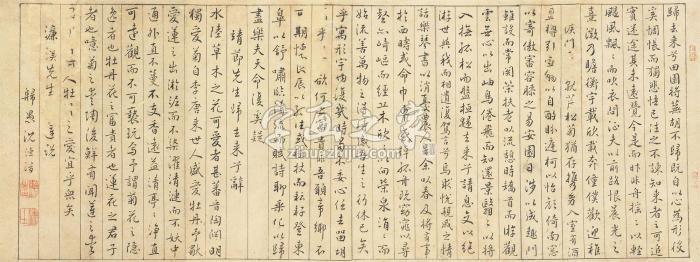 歸去來兮田園將蕪胡不歸既自以心為形役
奚惆悵而獨悲悟已往之不諫知來者之可追
實迷途其未遠覺今是而昨非舟搖搖以輕
颺風飄飄而吹衣問征夫以前路恨晨光之
熹微乃瞻衡宇載欣載奔僮僕歡迎稚
候門就荒松菊猶存攜入室有酒
盈樽引壺觴以自酌眄庭柯以怡顏倚南窗
以寄傲審容膝之易安園日涉以成趣門
雖設而常關策扶老以流憩時矯首而遐觀
雲無心以出岫鳥倦飛而知還景翳翳以將
入撫孤松而盤桓歸去來兮請息交以絕
游世與我而相遺復駕言兮焉求悅親戚之情
話樂琴書以消憂農人余以春及將有事
於西疇或命巾車或孤舟既窈窕以尋
壑亦崎嶇而經丘木欣向榮泉涓涓而
始流善萬物之得時吾生之行休已矣
乎寓形宇內復幾時曷不委心任去留胡
乎兮欲何富貴非吾願帝鄉不
可期懷良辰以孤往或植杖而耘耔登東
皋以舒嘯臨清流而賦詩聊乘化以歸
盡樂夫天命復奚疑
靖節先生歸去來兮辭
水陸草木之花可愛者甚蕃晉陶淵明
獨愛菊自李唐來世人盛愛牡丹予獨
愛蓮之出淤泥而不染濯清漣而不妖中
通外直不蔓不支香遠益清亭亭淨植
可遠觀而不可褻玩焉予謂菊花之隱
逸者也牡丹花之富貴者也蓮花之君子
者也噫菊之愛陶後鮮有聞蓮之愛
人牡之愛宜乎眾矣
濂溪先生蓮說
歸愚沈德潛